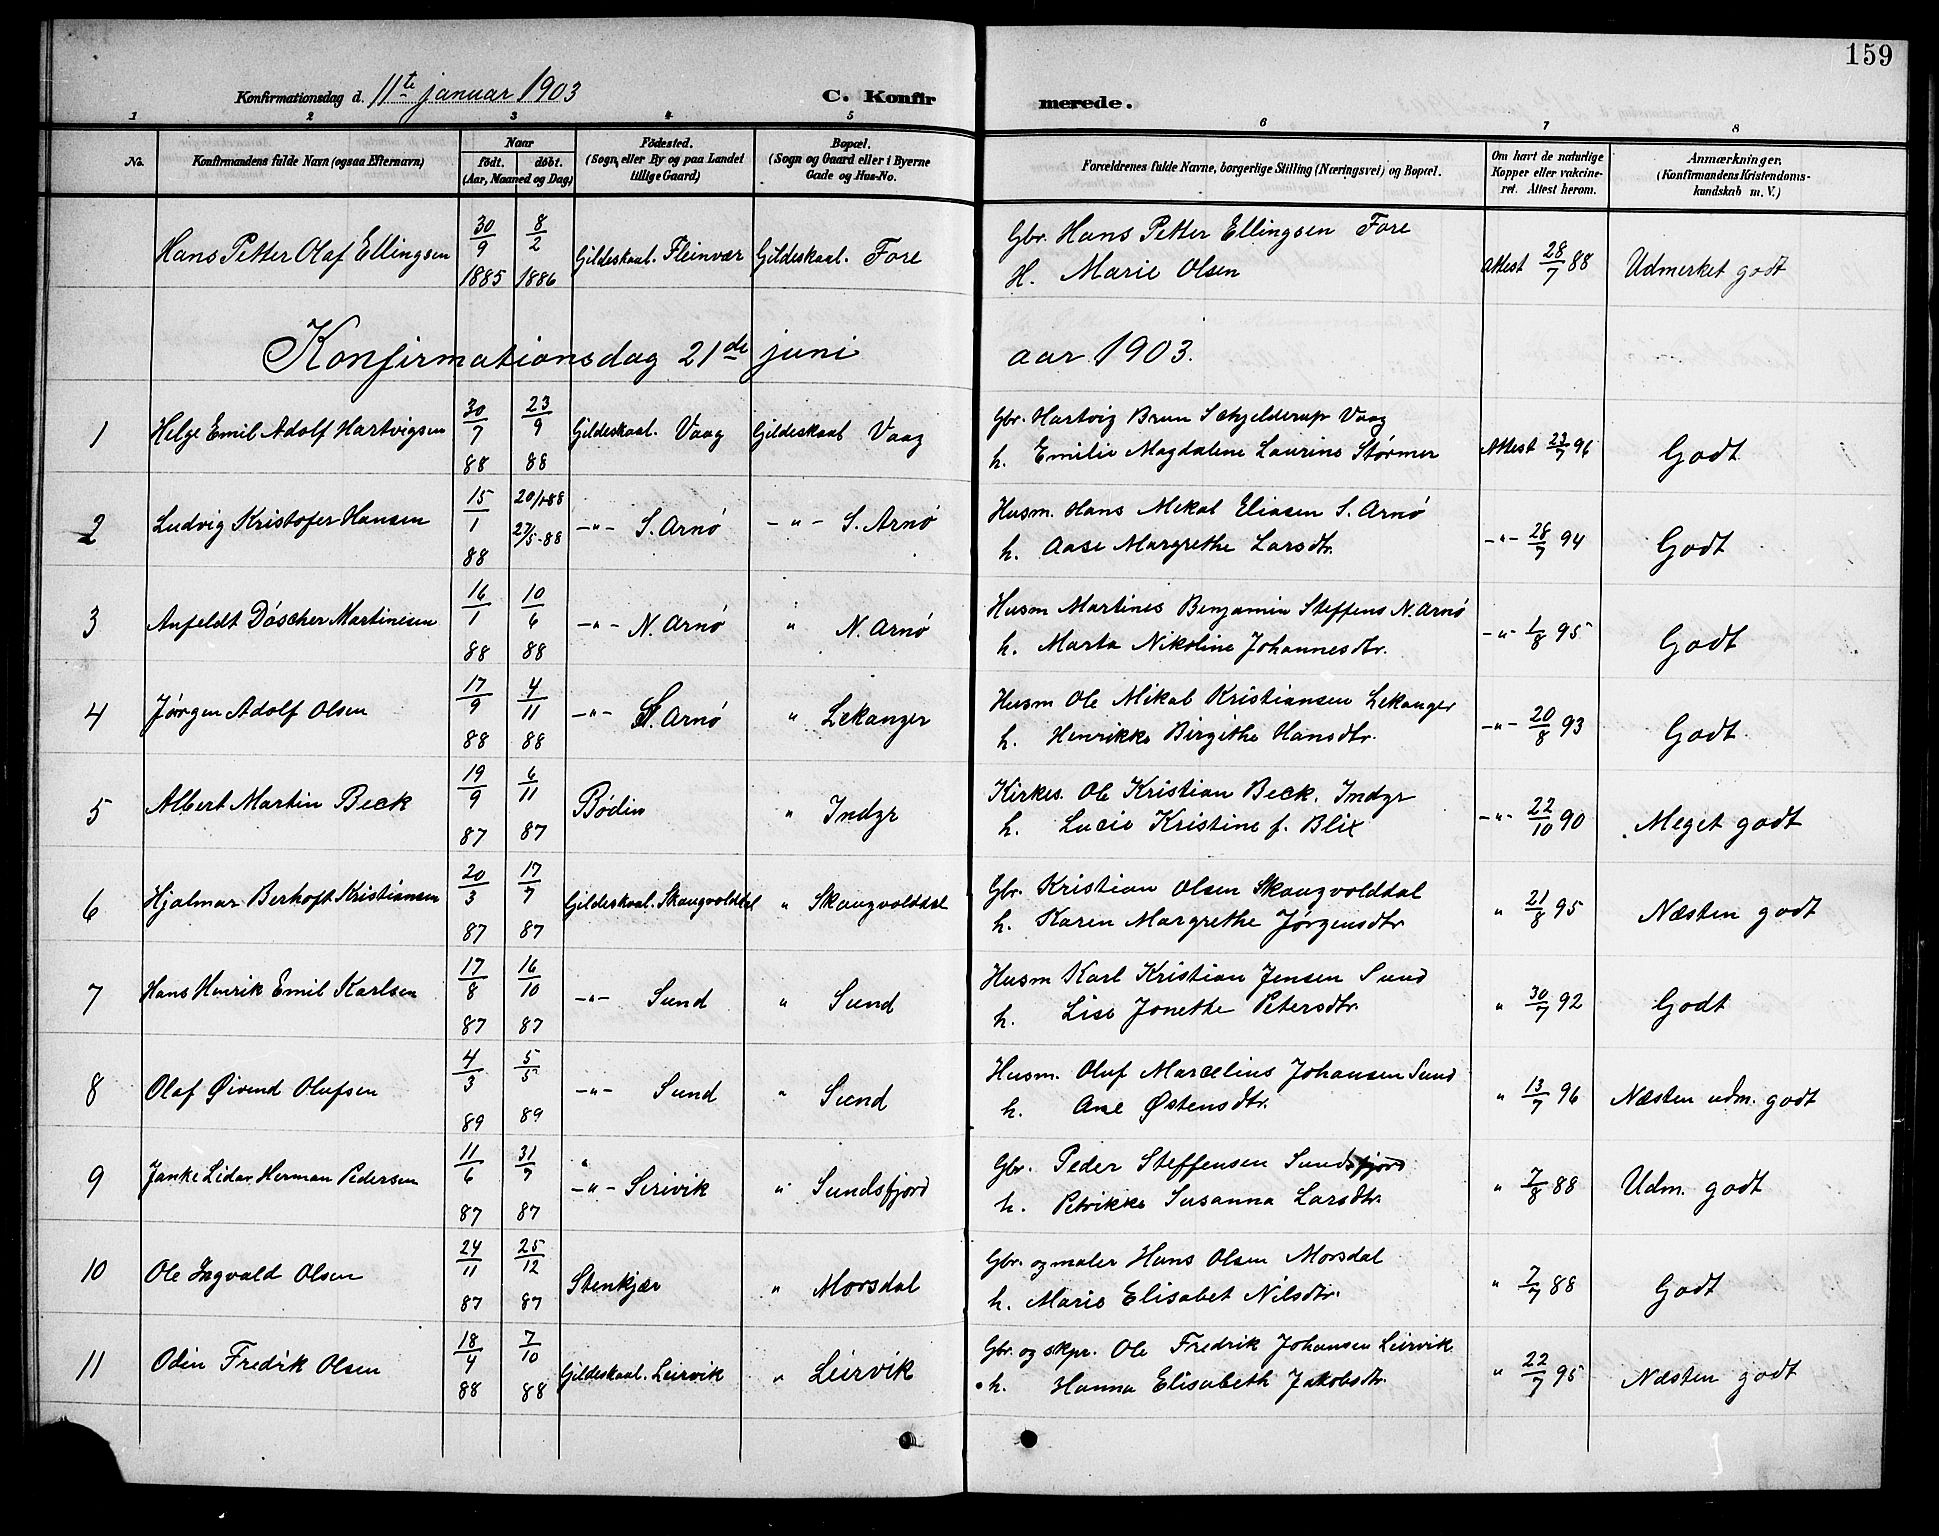 159
Konfirmationsdag d. 11te januar 1903 C. Konfirmerede.
1 2 3 4 5 6 7 8
No. Konfirmandens fulde Navn (ogsaa Efternavn) Naar født. døbt. (Aar, Maaned og Dag) Fødested. (Sogn, eller By og paa Landet tillige Gaard) Bopæl. (Sogn og Gaard eller i Byerne Gade og Hus-No. Forældrenes fulde Navne, borgerlige Stilling (Næringsvei) og Bopæl. Om havt de naturlige Kopper eller vakcineret. Attest herom. Anmærkninger. (Konfirmandens Kristendomskundskab m. V.)
Hans Petter Olaf Ellingsen 30/9 1885 8/2 1886 Gildeskaal. Fleinvær Gildeskaal. Fore Gbr. Hans Petter Ellingsen Fore
H. Marie Olsen Attest 28/7 88 Udmerket godt
Konfirmationsdag 21de juni aar 1903.
1 Helge Emil Adolf Hartvigsen 30/7 88 23/9 88 Gildeskaal. Vaag Gildeskaal Vaag Gbr. Hartvig Brun Schjelderup Vaag
h. Emilie Magdalene Laurine Størmer Attest 23/7 96 Godt
2 Ludvig Kristofer Hansen 15/1 88 20/1-88 27/5-88 -"- S. Arnø -"- S. Arnø Husm. Hans Mikal Eliasen S. Arnø
h. Aase Margrethe Larsdtr. -"- 28/7 94 Godt
3 Anfeldt Døscher Martinesen 16/1 88 10/6 88 -"- N. Arnø " N. Arnø Husm Martines Benjamin Steffens N. Arnø
h. Marta Nikoline Johannesdtr. -"- 1/8 95 Godt
4 Jørgen Adolf Olsen 17/9 88 4/11 88 -"- S. Arnø " Lekanger Husm Ole Mikal Kristiansen Lekanger
h. Henrikke Birgithe Hansdtr. -"- 20/8 93 Godt
5 Albert Martin Beck 19/9 87 6/11 87 Bodin " Indyr Kirkes. Ole Kristian Beck. Indyr
h. Lucie Kristine f. Blix -"- 22/10 90 Meget godt
6 Hjalmar Berhoft Kristiansen 20/3 87 17/7 87 Gildeskaal. Skaugvolddal " Skaugvolddal Gbr. Kristian Olsen Skaugvolddal
h. Karen Margrethe Jørgensdtr " 21/8 95 Næsten godt
7 Hans Henrik Emil Karlsen 17/8 87 16/10 87 -"- Sund " Sund Husm Karl Kristian Jensen Sund
h. Lise Jonette Petersdtr. " 30/7 92 Godt
8 Olaf Øivend Olufsen 4/3 89 5/5 89 -"- Sund " Sund Husm. Oluf Marcelius Johansen Sund
h. Ane Østensdtr. " 13/7 96 Næsten udm. godt
9 Janke Lidar Herman Pedersen 11/6 87 31/7 87 " -"- Sirivik " Sundsfjord Gbr. Peder Steffensen Sundsfjord
h. Petrikke Susanna Larsdtr. " 7/8 88 Udm. godt
10 Ole Ingvald Olsen 24/11 87 25/12 87 Stenkjær " Morsdal Gbr. og maler Hans Olsen Morsdal
h. Marie Elisabet Nilsdtr. " 7/7 88 Godt
11 Odin Fredrik Olsen 18/4 88 7/10 88 Gildeskaal. Leirvik " Leirvik Gbr. og skpr. Ole Fredrik Johansen Leirvik
h. Hanna Elisabeth Jakobsdtr. " 22/7 95 Næsten godt